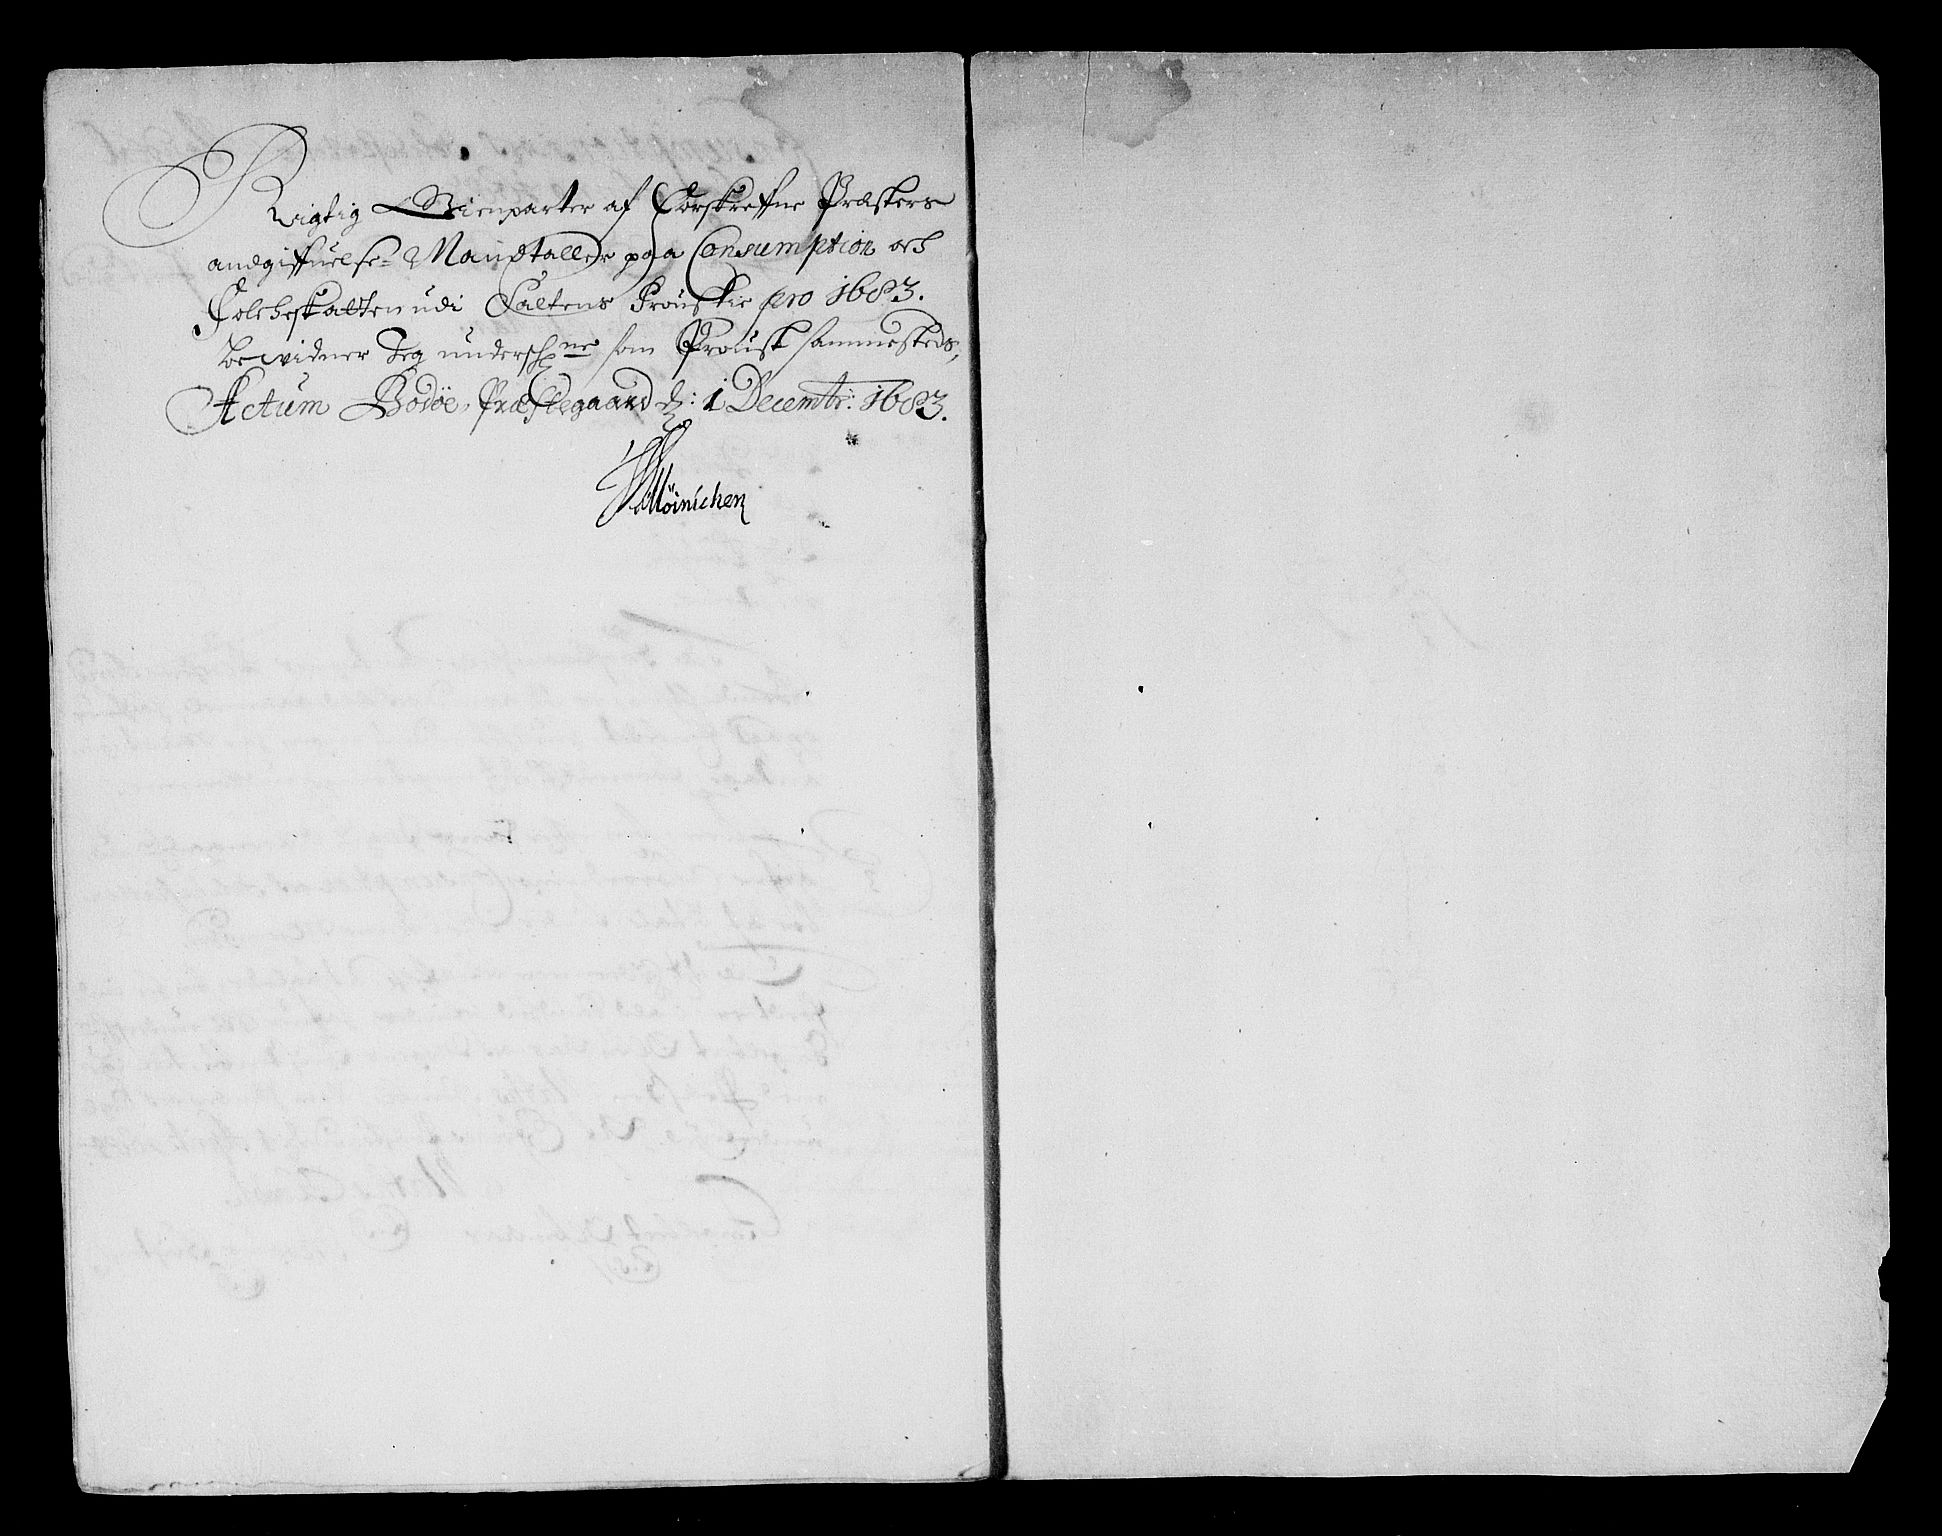 Rigtig Gienparter af Forskrefne Præsters
andgiffuelse Mandtaller paa Consumption och
Folcheskatten udi Saltens Proustie pro 1683.
bewidner Jeg undersch:ne som Proust sammesteds,
Actum Bodöe Præstegaard d: 1 Decembr: 1683.
HMöinichen